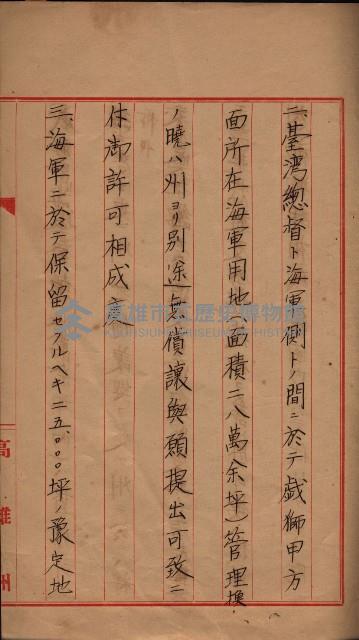 二、臺灣總督ト海軍側ト間ニ於テ戯獅甲方
面所在海軍用地(面積二八萬余坪)管理換
ノ曉ハ州ヨリ別途無償讓與願提出可致ニ
付御許可相成度
三、海軍ニ於テ保留セラルヘキ二五、〇〇〇坪ノ豫定地
高雄州
高雄市立歷史博物館
KAOHSIUNG MUSEUM OF HISTORY